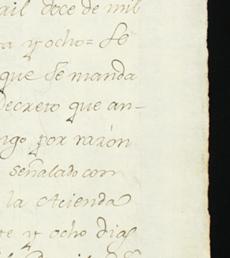 doce de mil
y ocho = Se
que Se manda
Decreto que an-
por razón
señalado con
la Acienda
y ocho dias